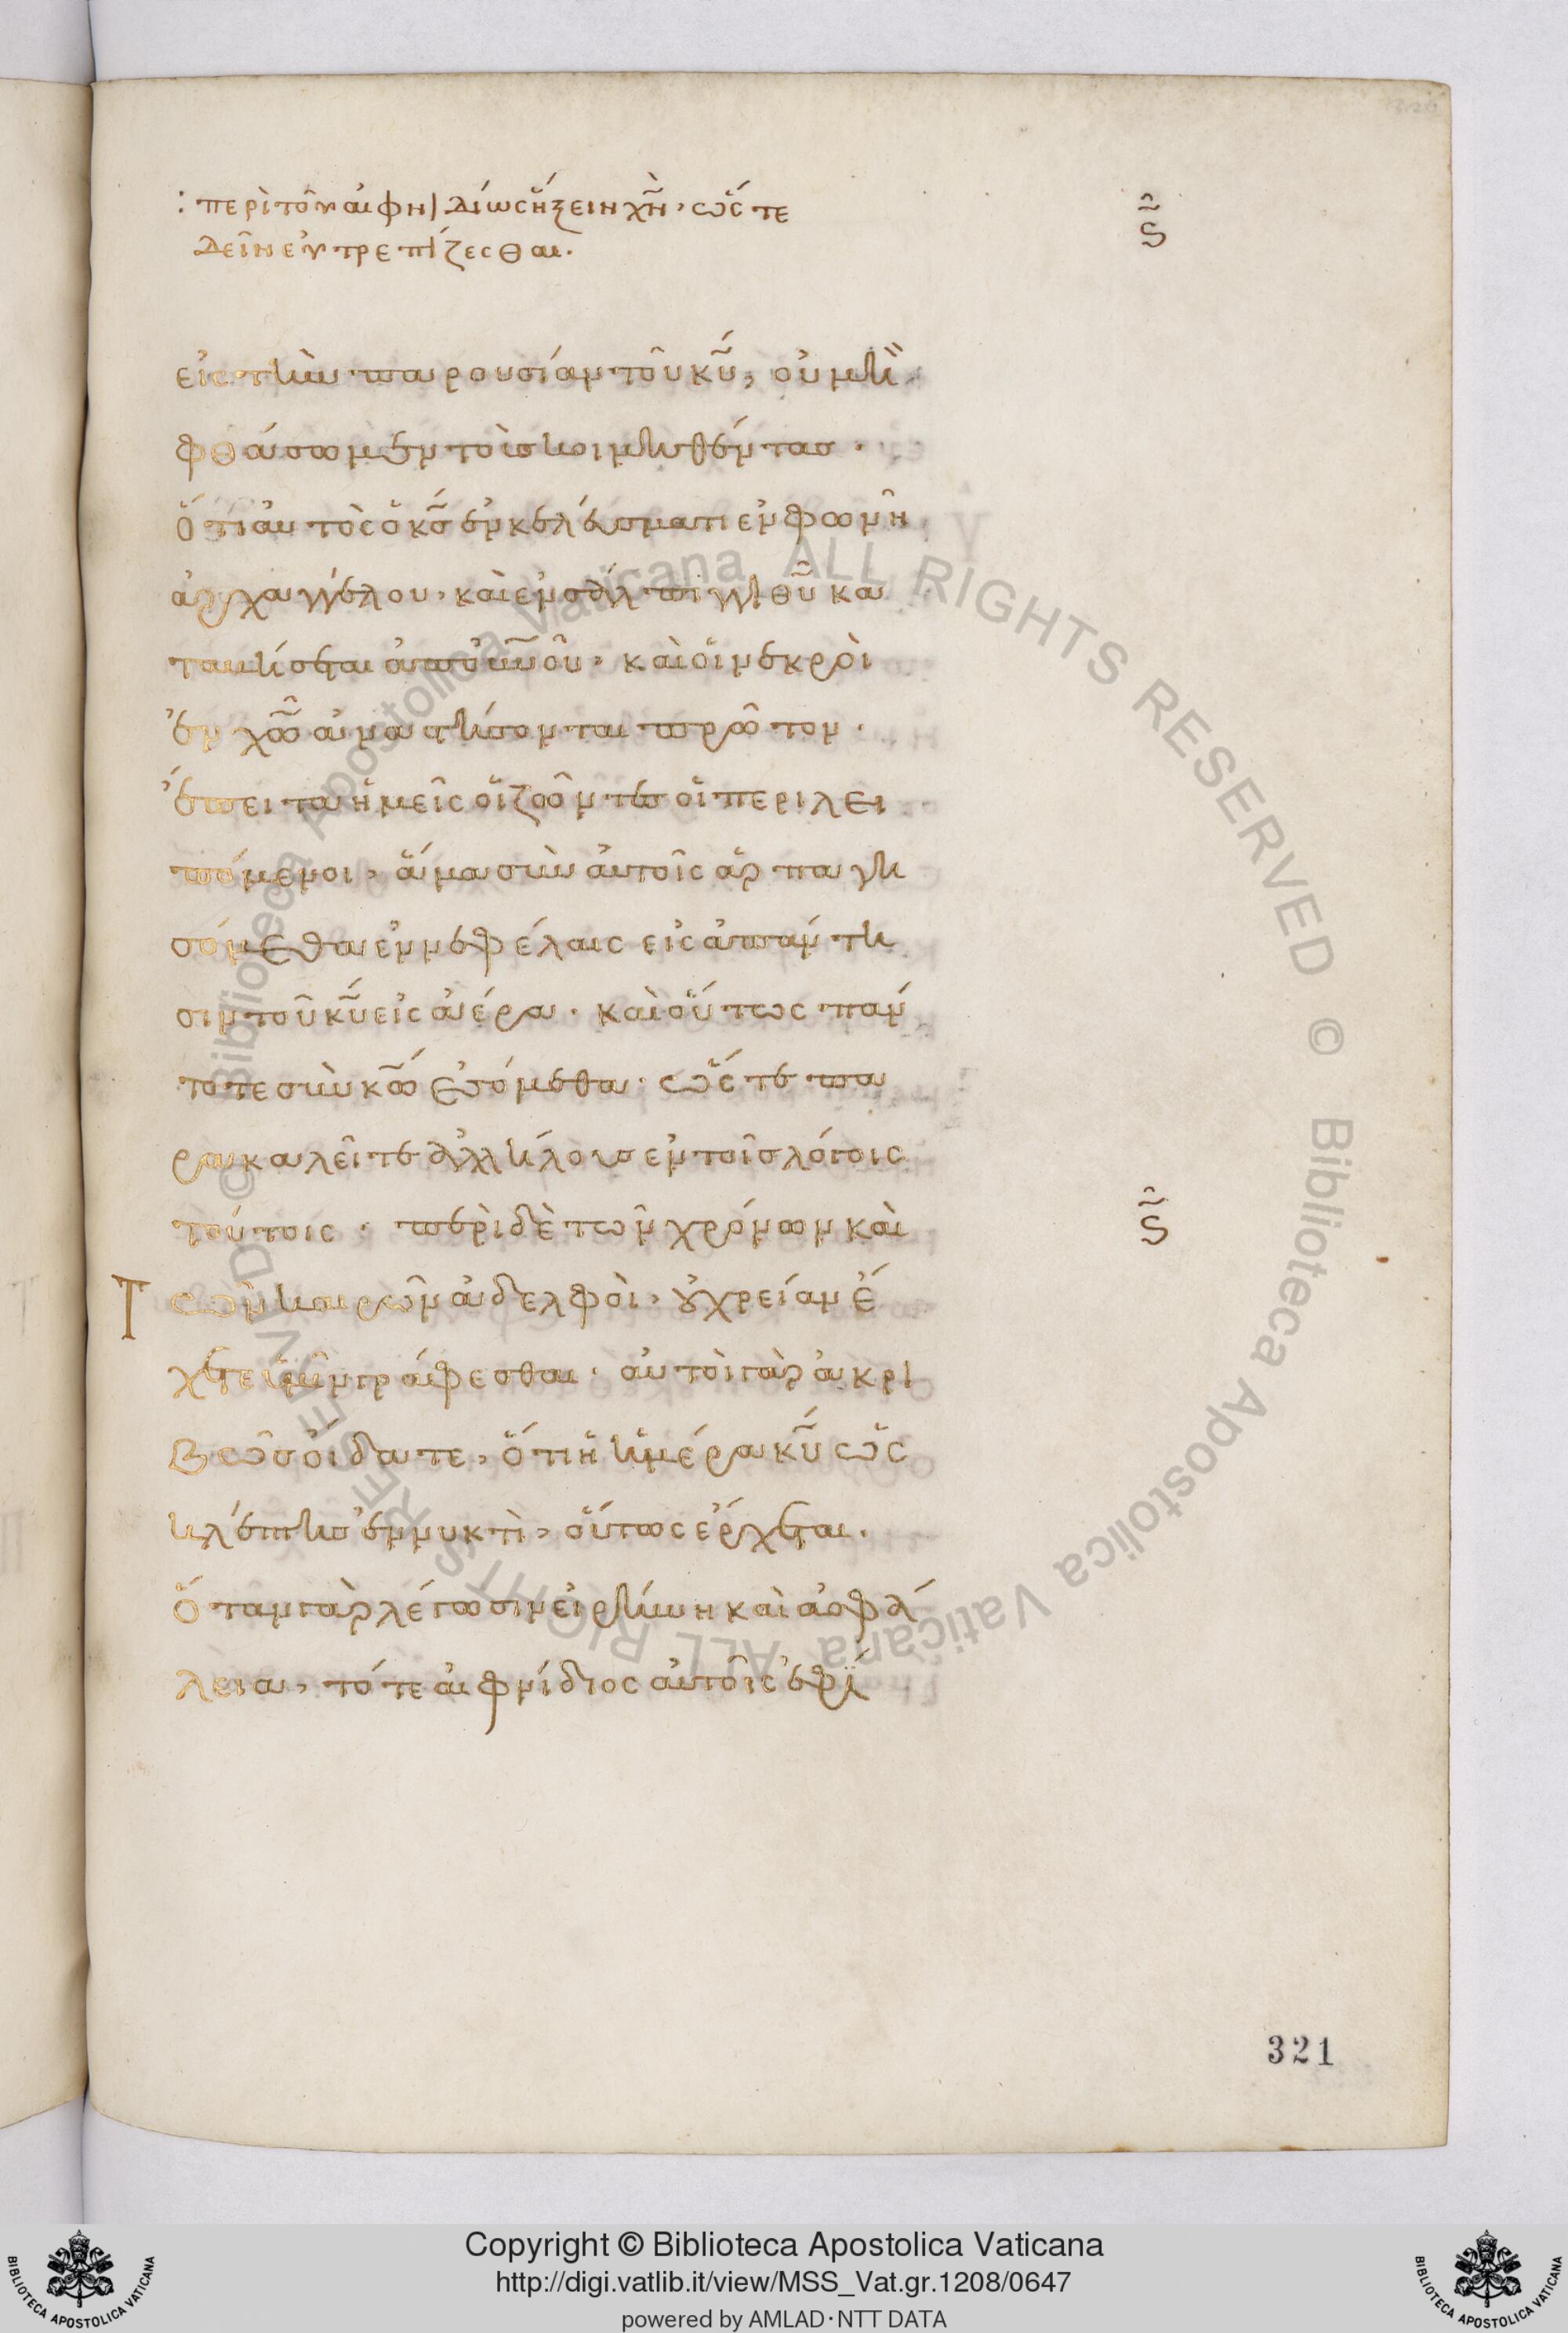 : περὶ τοῦ αἰφνηδίως ἥξειν χν̃, ὥστε
δεῖν εὐτρεπίζεσθαι.
ς
εἰς τὴν παρουσίαν τοῦ κυ̃, οὐ μὴ
φθάσωμεν τοὺς κοιμηθέντας.
ὅτι αὐτὸς ὁ κς̃ ἐν κελεύσματι ἐν φωνῆ
ἀρχαγγέλου, καὶ ἐν σάλπιγγι θυ̃ κα
ταβήσεται ἀπ οὐνοῦ, καὶ οἱ νεκροὶ
ἐν χω̃ ἀναστήσονται πρῶτον.
ἔπειτα ἡμεῖς οἱ ζῶντες οἱ περιλει
πόμενοι, ἅμα σὺν αὐτοῖς ἁρπαγη
σόμεθα ἐν νεφέλαις εἰς ἀπάντη
σιν τοῦ κυ̃ εἰς ἀέρα. καὶ οὕτως πάν
τοτε σὺν κω̃ ἐσόμεθα. ὥστε πα
ρακαλεῖτε ἀλλήλους ἐν τοῖς λόγοις
τούτοις. περὶ δὲ τῶν χρόνων καὶ
ς
τῶν καιρῶν ἀδελφοὶ, οὐ χρείαν ἔ
χετε ὑμῖν γράφεσθαι. αὐτοὶ γὰρ ἀκρι
βῶς οἴδατε, ὅτι ἡ ἡμέρα κυ̃ ὡς
κλέπτης ἐν νυκτὶ, οὕτως ἔρχεται.
ὅταν γὰρ λέγωσιν εἰρήνη καὶ ἀσφά
λεια, τότε αἰφνίδιος αὐτοῖς ἐφί
321
© Biblioteca Apostolica Vaticana ALL RIGHTS RESERVED © Biblioteca Apostolica Vaticana ALL RIGHTS RESERVED
Copyright © Biblioteca Apostolica Vaticana
http://digi.vatlib.it/view/MSS_Vat.gr.1208/0647
powered by AMLAD·NTT DATA
BIBLIOTECA APOSTOLICA VATICANA
BIBLIOTECA APOSTOLICA VATICANA